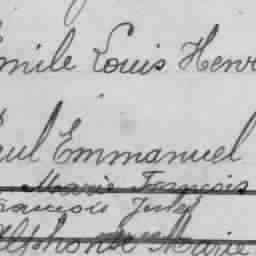 Emile Louis Henri
Paul Emmanuel
Marie François
François Jules
Alphonse Marie